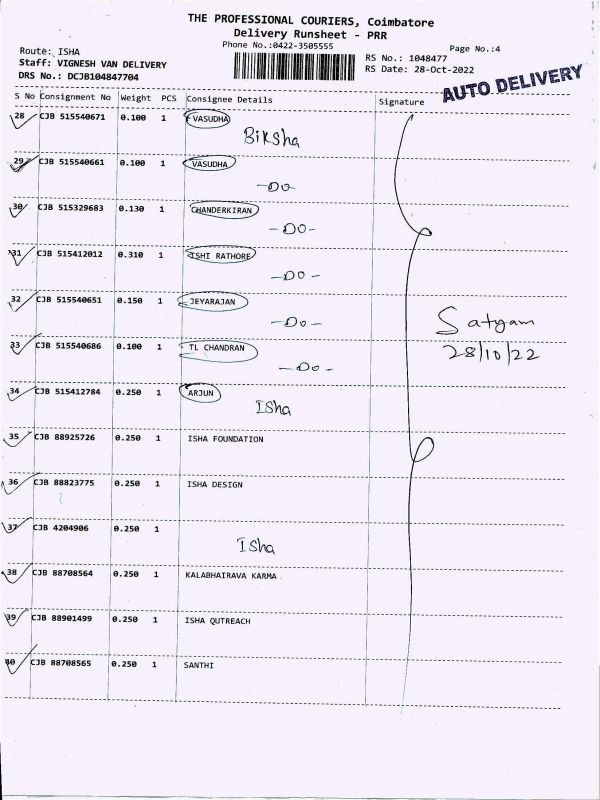 THE PROFESSIONAL COURIERS, Coimbatore
Delivery Runsheet - PRR
Phone No.:0422-3505555
Page No.:4
Route: ISHA
Staff: VIGNESH VAN DELIVERY
DRS No.: DCJB104847704
RS No.: 1048477
RS Date: 28-Oct-2022
AUTO DELIVERY
S No Consignment No Weight PCS Consignee Details Signature
28 CJB 515540671 0.100 1 VASUDHA
Biksha
29 CJB 515540661 0.100 1 VASUDHA
-Do-
30 CJB 515329683 0.130 1 CHANDERKIRAN
-Do-
31 CJB 515412012 0.310 1 ISHI RATHORE
-Do-
32 CJB 515540651 0.150 1 JEYARAJAN
-Do-
Satyam
28/10/22
33 CJB 515540686 0.100 1 TL CHANDRAN
-Do-
34 CJB 515412784 0.250 1 ARJUN
ISha
35 CJB 88925726 0.250 1 ISHA FOUNDATION
36 CJB 88823775 0.250 1 ISHA DESIGN
37 CJB 4204906 0.250 1
ISha
38 CJB 88708564 0.250 1 KALABHAIRAVA KARMA
39 CJB 88901499 0.250 1 ISHA QUTREACH
40 CJB 88708565 0.250 1 SANTHI